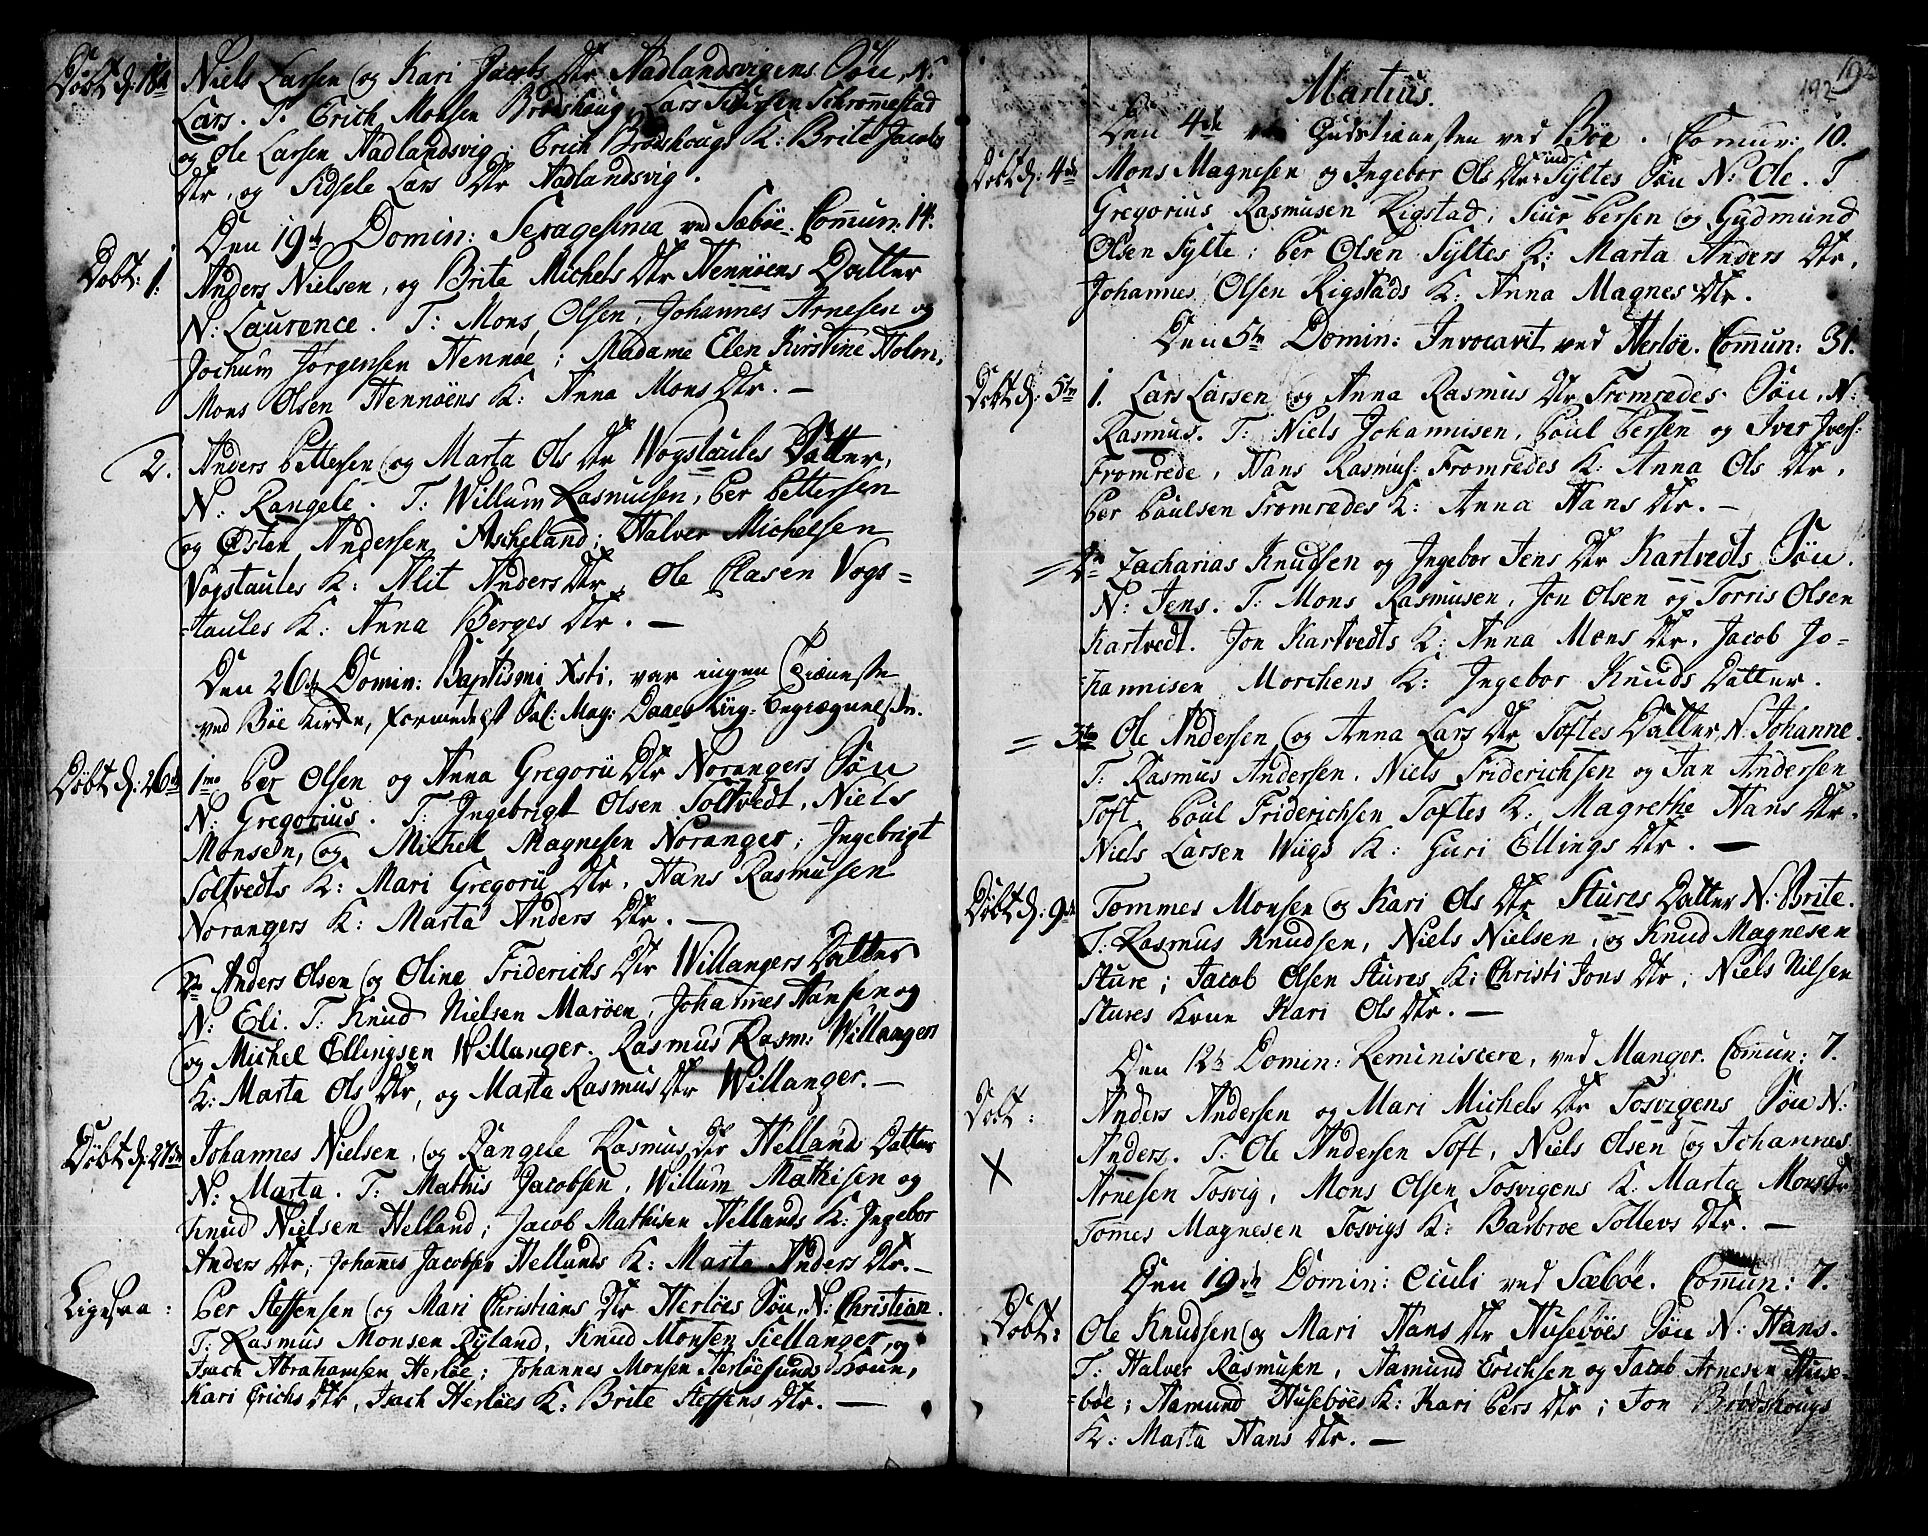 Døbt d: 18de Niels Larsen og Kari Jacobs Dtr Hadlandsvigens Søn, N:
Lars. T: Erich Monsen Brødshoug, Lars Siursen Schrommestad
og Ole Larsen Hadlandsvig; Erich Brødshougs K: Brite Jacobs
Dtr, og Sidsele Lars Dtr Hadlandsvig.
Den 19de Domin: Sexagesima ved Sæbøe. Comun: 14.
Døbt: 1. Anders Nielsen, og Brite Michels Dtr Hennøens Datter
N: Laurence. T: Mons Olsen, Johannes Arnesen og
Jochum Jørgensen Hennøe; Madame Elen Kirstine Holm,
Mons Olsen Hennøens K: Anna Mons Dtr. —
2. Anders Pettersen og Marta Ols Dtr Vogstaules Datter,
N: Rangele. T: Willum Rasmusen, Per Pettersen
og Østen Andersen Ascheland; Halver Michelsen
Vogstaules K: Alit Anders Dtr, Ole Clasen Vogs=
=taules K: Anna Berges Dtr. —
Den 26de Domin: Baptismi Xsti, var ingen Tieneste
ved Bøe Kirke, formedelst Sal: Mag: Daaes Liig-Begrægnelse.
Døbt d: 26de 1mo Per Olsen og Anna Gregorii Dtr Norangers Søn
N: Gregorius. T: Ingebrigt Olsen Toltvedt, Niels
Monsen, og Michel Magnesen Noranger; Ingebrigt
Toltvedts K: Mari Gregorii Dtr, Hans Rasmusen
Norangers K: Marta Anders Dtr. —
2do Anders Olsen og Oline Friderichs Dtr Willangers Datter
N: Eli. T: Knud Nielsen Marøen, Johannes Hansen og
og Michel Ellingsen Willanger. Rasmus Rasm: Willangers
K: Marta Ols Dtr, og Marta Rasmus Dtr Willanger. —
Døbt d: 27de Johannes Nielsen, og Rangele Rasmus Dtr Hellands Datter
N: Marta. T: Mathis Jacobsen, Willum Mathisen og
Knud Nielsen Helland; Jacob Mathisen Hellands K: Ingebor
Anders Dtr; Johannes Jacobsen Hellands K: Marta Anders Dtr. —
Ligesaa: Per Steffensen og Mari Christians Dtr Herløes Søn, N: Christian.
T: Rasmus Monsen Ryland, Knud Monsen Siellanger, og
Isach Abrahamsen Herløe; Johannes Monsen Herløesunds Kone,
Kari Erichs Dtr, Isach Herløes K: Brite Steffens Dtr. —
192
192
Martius.
Den 4de Gudstienesten ved Bøe. Comun: 10.
Døbt d: 4de Mons Magnesen og Ingebor Ols Dtr Syltes Søn N: Ole. T
Gregorius Rasmusen Rigstad; Siur Persen og Gudmund
Olsen Sylte; Per Olsen Syltes K: Marta Anders Dtr,
Johannes Olsen Rigstads K: Anna Magnes Dtr.
Den 5te Domin: Invocavit ved Herløe. Comun: 31.
Døbt d: 5te 1. Lars Larsen og Anna Rasmus Dtr Fromredes Søn, N:
Rasmus. T: Niels Johannisen, Poul Persen og Iver Ivers:
Fromrede, Hans Rasmus: Fromredes K: Anna Ols Dtr,
Per Poulsen Fromredes K: Anna Hans Dtr. —
= 2do Zacharias Knudsen og Ingebor Jens Dtr Kartvedts Søn.
N: Jens. T: Mons Rasmusen, Jon Olsen og Torris Olsen
Kartvedt. Jon Kartvedts K: Anna Mons Dtr, Jacob Jo=
=hannisen Morchens K: Ingebor Knuds Datter.
= 3tio Ole Andersen og Anna Lars Dtr Toftes Datter, N: Johanne.
T: Rasmus Andersen, Niels Friderichsen og Jan Andersen
Toft. Poul Friderichsen Toftes K: Magrethe Hans Dtr.
Niels Larsen Wiigs K: Guri Ellings Dtr. —
Døbt d: 9de Tommes Monsen og Kari Ols Dtr Stures Datter N: Brite.
T: Rasmus Knudsen, Niels Nielsen, og Knud Magnesen
Sture; Jacob Olsen Stures K: Christi Jons Dtr; Niels Nilsen
Stures Kone Kari Ols Dtr. —
Den 12te Domin: Reminiscere, ved Manger. Comun: 7.
Døbt: Anders Andersen og Mari Michels Dtr Tosvigens Søn N:
Anders. T: Ole Andersen Toft, Niels Olsen og Johannes
X Arnesen Tosvig, Mons Olsen Tosvigens K: Marta Mons Dtr
Tomes Magnesen Tosvigs K: Barbroe Tollevs Dtr. —
Den 19de Domin: Oculi ved Sæbøe. Comun: 7.
Døbt: Ole Knudsen og Mari Hans Dtr Husebøes Søn N: Hans.
T: Halver Rasmusen, Aamund Erichsen og Jacob Arnesen Huse=
=bøe; Aamund Husebøes K: Kari Pers Dtr; Jon Brødshougs
K: Marta Hans Dtr. —